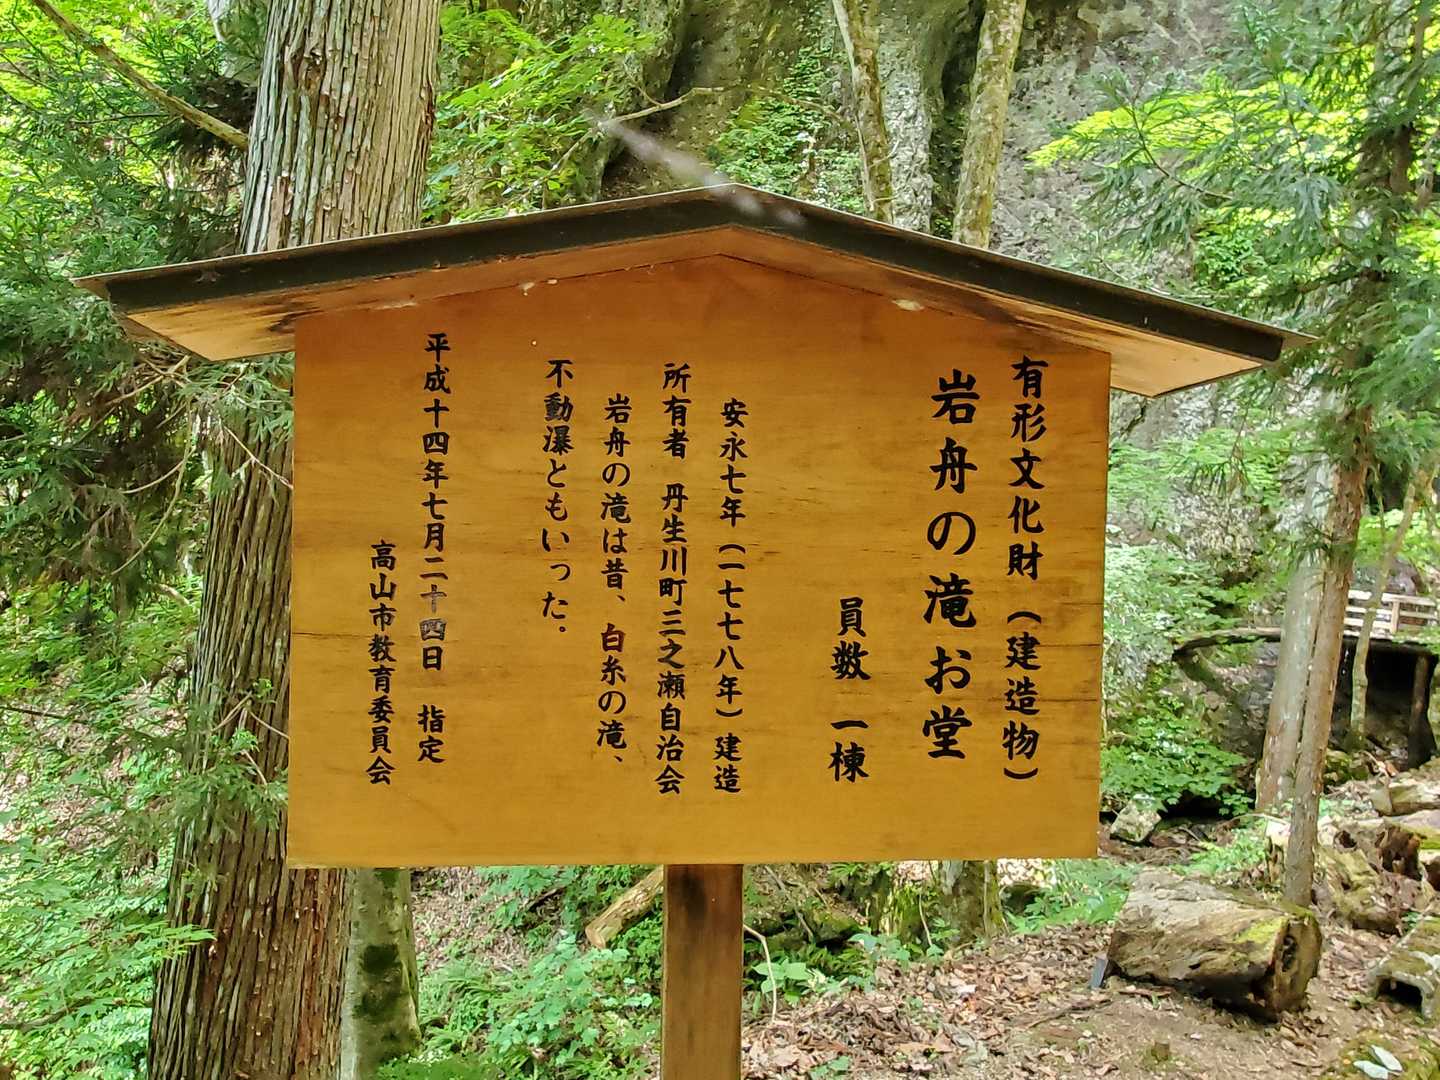 有形文化財（建造物）
岩舟の滝お堂
員数 一棟
安永七年（一七七八年）建造
所有者 丹生川町三之瀬自治会
岩舟の滝は昔、白糸の滝、
不動瀑ともいった。
平成十四年七月二十四日 指定
高山市教育委員会